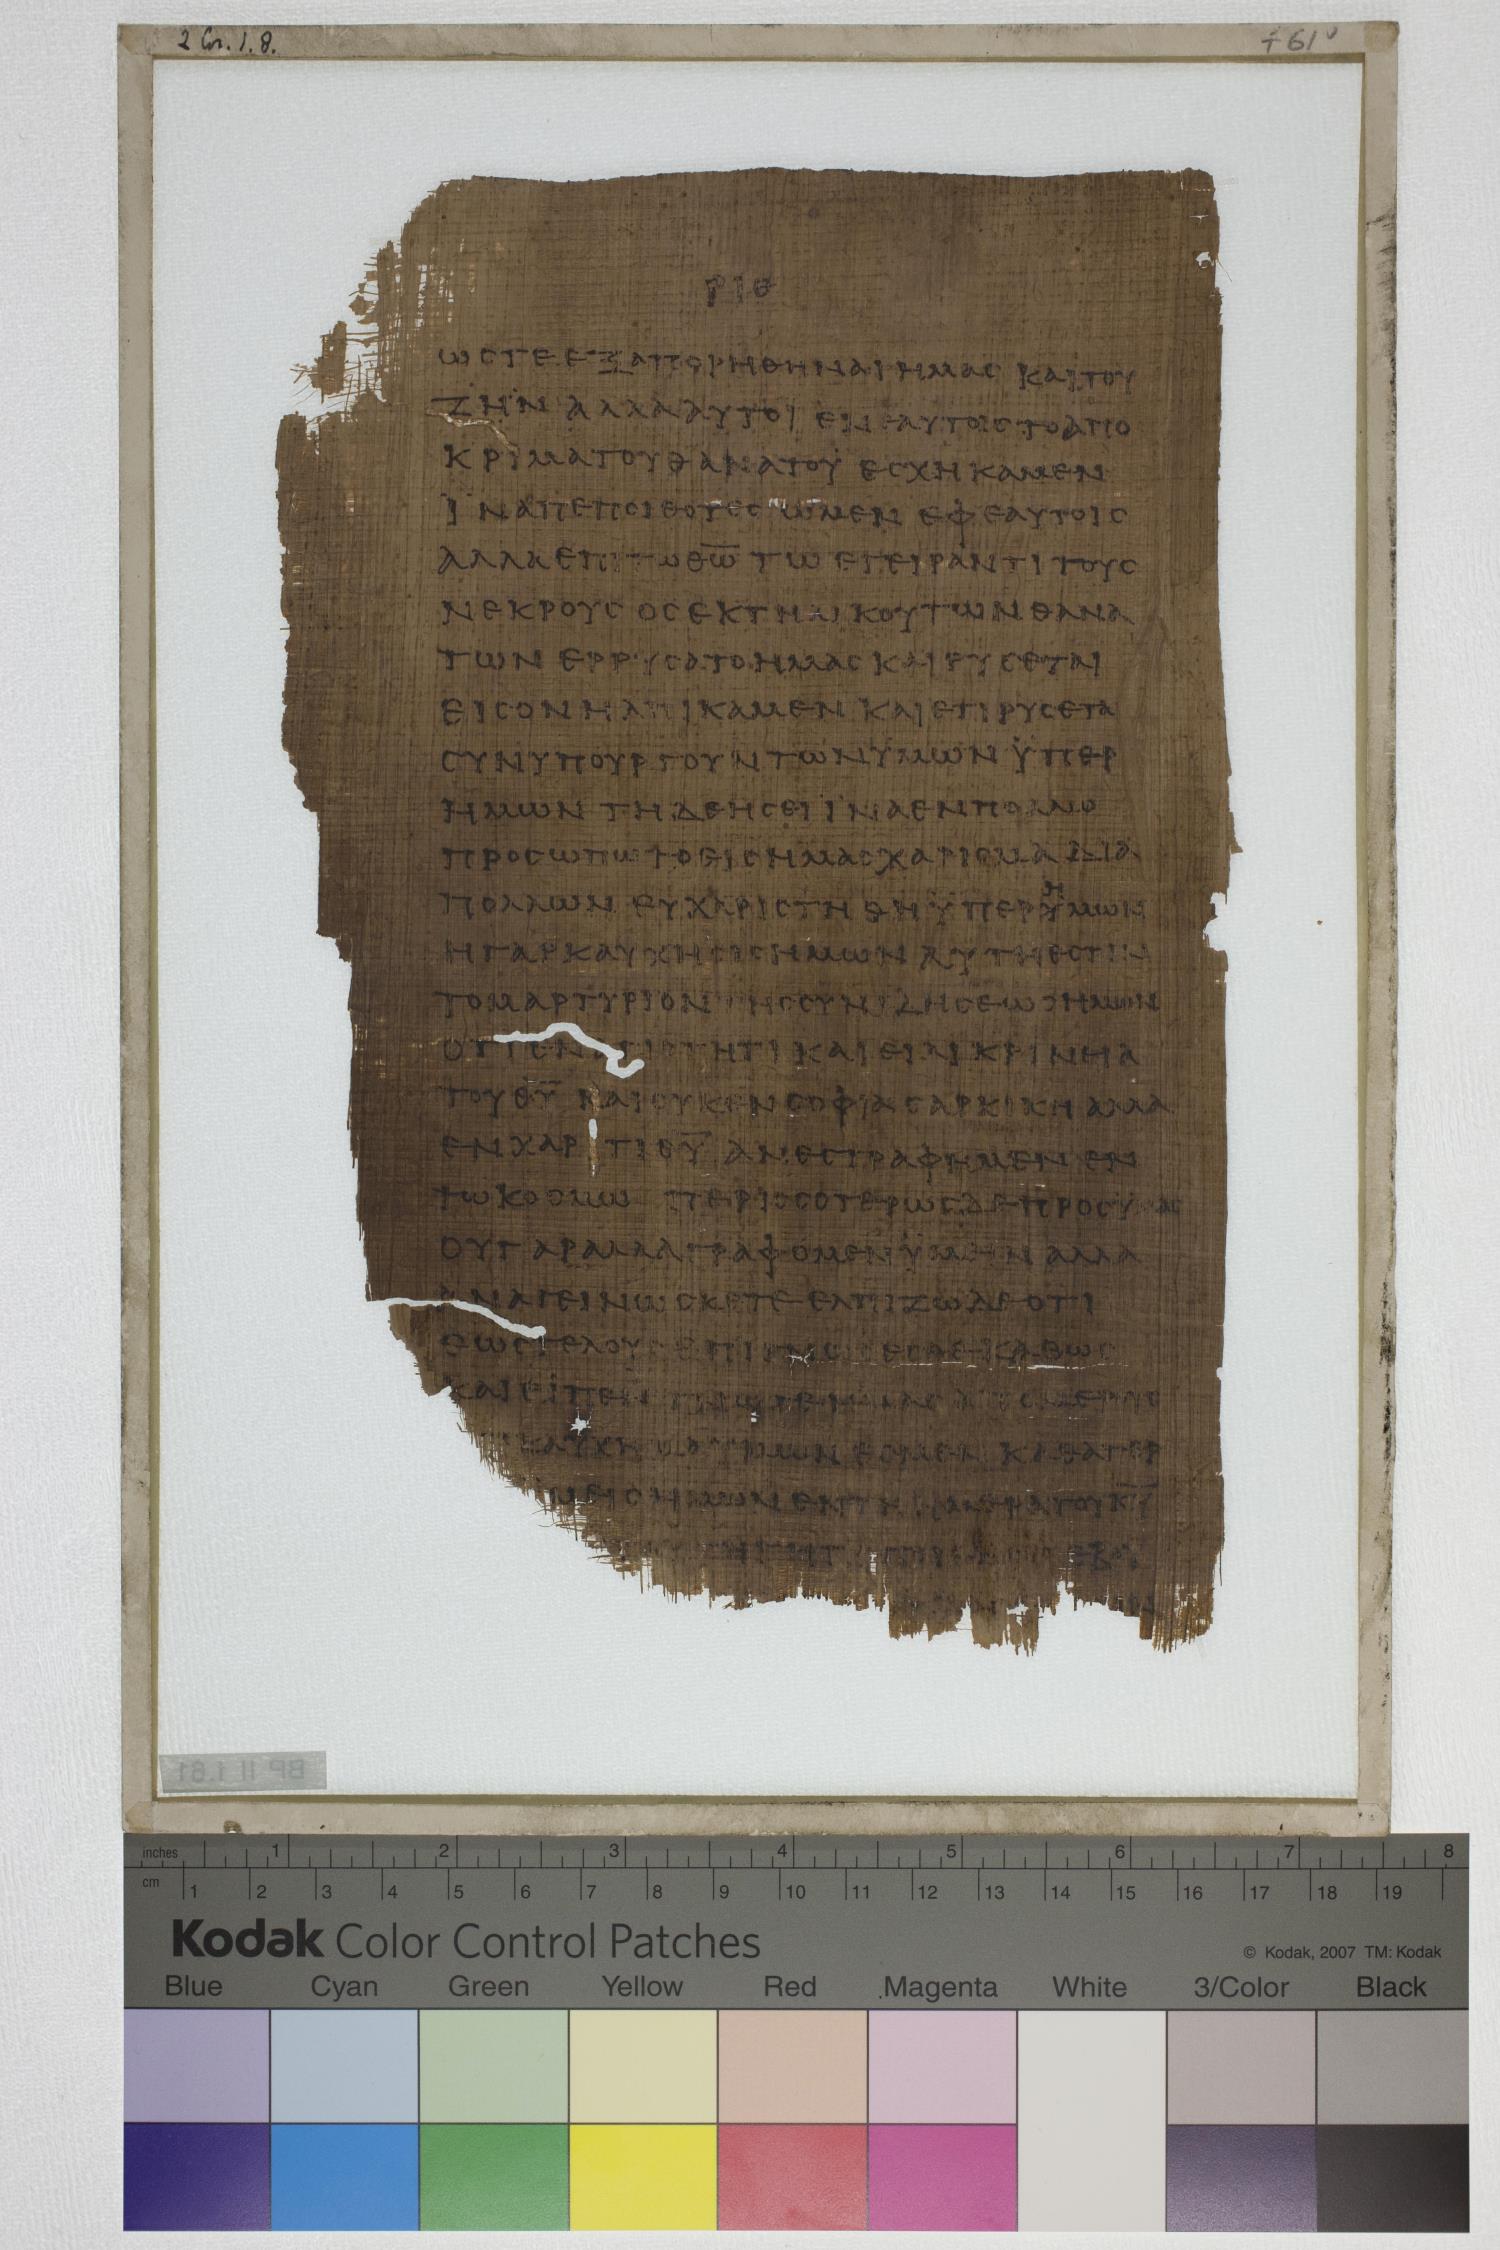 2 Cor. 1. 8.
f 61 v
ΡΙΘ
ωϲτε εξαπορηθηναι ημαϲ και του
ζην αλλα αυτοι εν εαυτοιϲ το απο
κριμα του θανατου εϲχηκαμεν
ϊνα πεποιθοτεϲ ωμεν εφ εαυτοιϲ
αλλα επι τω θ̅ω̅ τω εγειραντι τουϲ
νεκρουϲ οϲ εκ τηλικουτων θανα
των ερρυϲατο ημαϲ και ρυϲεται
ειϲ ον ηλπικαμεν και ετι ρυϲετα
ϲυνυπουργουντων ϋμων ϋπερ
ημων τη δεηϲει ϊνα εν πολλω
προϲωπω το ειϲ ημαϲ χαριϲμα δια
πολλων ευχαριϲτηθη ϋπερ ϋμων
η
η γαρ καυχηϲιϲ ημων αυτη εϲτιν
το μαρτυριον τηϲ ϲυνιδηϲεωϲ ημων
οτι εν αγιοτητι και ειλικρινηα
του θ̅υ̅ και ουκ εν ϲοφια ϲαρκικη αλλα
εν χαριτι θ̅υ̅ ανεϲτραφημεν εν
τω κοϲμω περιϲϲοτερωϲ δε προϲ υμαϲ
ου γαρ αλλα γραφομεν ϋμειν αλλα
αναγεινωϲκετε ελπιζω δε οτι
εωϲ τελουϲ επιγνωϲεϲθε καθωϲ
και
καυχημα ϋμων εϲμεν καθαπερ
μειϲ ημων εν τη ημερα του κ̅υ̅
BP II f.61
inches 1 2 3 4 5 6 7 8
cm 1 2 3 4 5 6 7 8 9 10 11 12 13 14 15 16 17 18 19
Kodak Color Control Patches
© Kodak, 2007 TM: Kodak
Blue Cyan Green Yellow Red Magenta White 3/Color Black